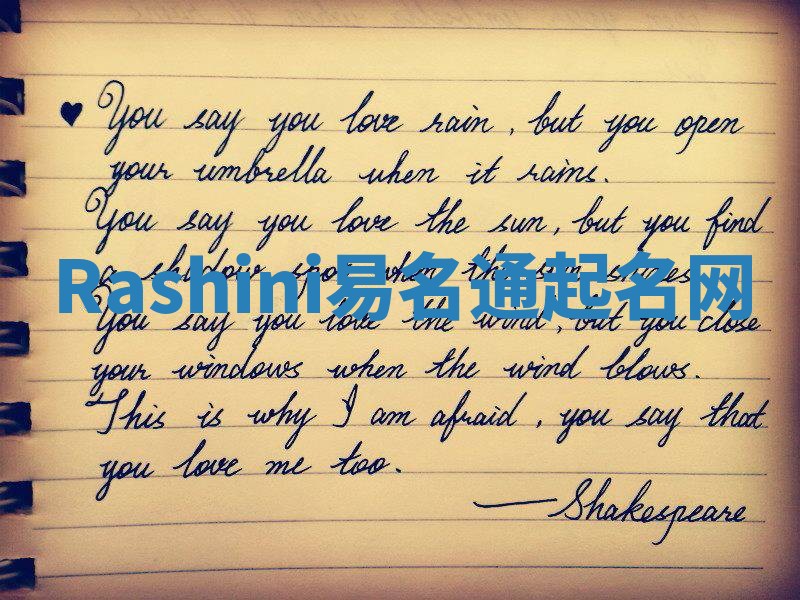 ♥ You say you love rain, but you open
your umbrella when it rains.
You say you love the sun, but you find
a shadow spot when the sun shines.
Rashini易名通起名网
You say you love the wind, but you close
your windows when the wind blows.
This is why I am afraid, you say that
you love me too.
— Shakespeare